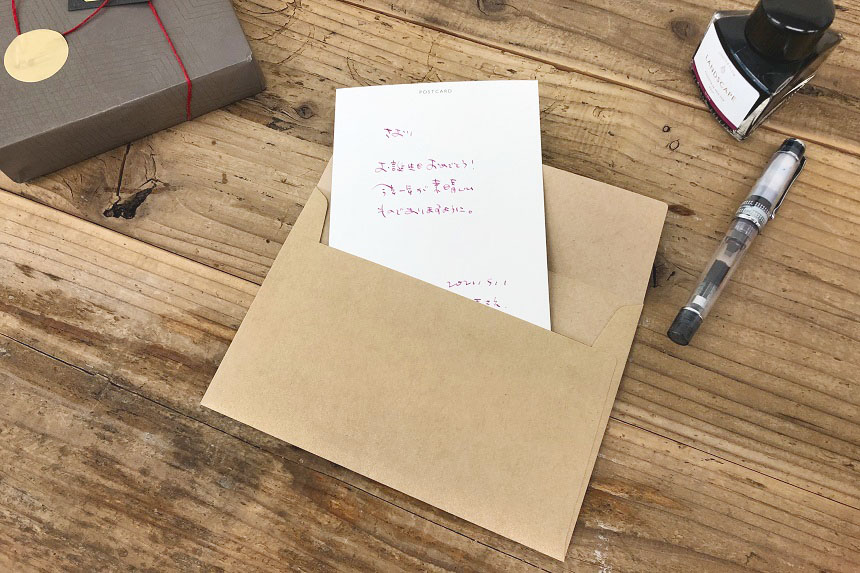 POSTCARD
さおり
お誕生日おめでとう!
今年一年が素晴しい
ものでありますように。
2021.5.1
LANDSCAPE